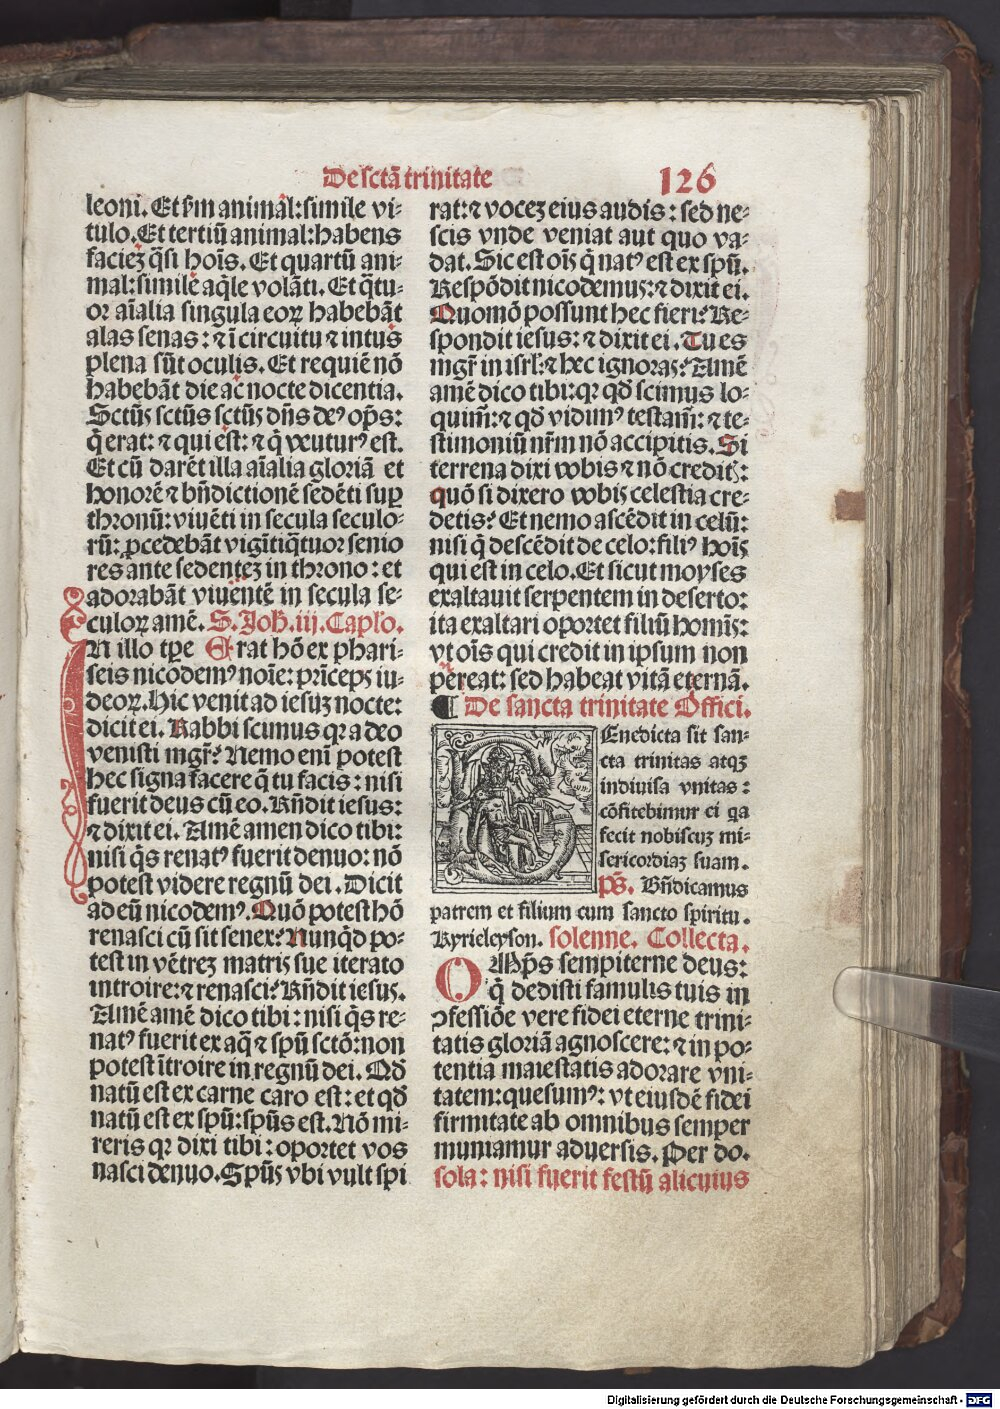 De sctā trinitate 126
leoni. Et sm animal: simile vi-
tulo. Et tertiū animal: habens
faciez q̄si hoīs. Et quartū ani-
mal: simile aq̄le volāti. Et q̄tu-
or aīalia singula eoꝝ habebāt
alas senas: ⁊ ī circuitu ⁊ intus
plena sūt oculis. Et requiē nō
habebāt die ac nocte dicentia.
Sctūs sctūs sctūs dn̄s deꝰ op̄s:
q̄ erat: ⁊ qui est: ⁊ q̄ vēturꝰ est.
Et cū darēt illa aīalia gloriā et
honorē ⁊ bn̄dictionē sedēti suꝑ
thronū: viuēti in secula seculo-
rū: ꝓcedebāt vigītiq̄tuor senio
res ante sedentez in throno: et
adorabāt viuentē in secula se-
culoꝝ amē. S. Joh. iij. Caplo.
In illo tꝑe Erat hō ex phari-
seis nicodemꝰ noīe: prīceps iu-
deoꝝ. Hic venit ad iesuz nocte:
dicit ei. Rabbi scimus qꝛ a deo
venisti mgr̄? Nemo enī potest
hec signa facere q̄ tu facis: nisi
fuerit deus cū eo. Rn̄dit iesus:
⁊ dixit ei. Amē amen dico tibi:
nisi q̄s renatꝰ fuerit denuo: nō
potest videre regnū dei. Dicit
ad eū nicodemꝰ. Quō potest hō
renasci cū sit senex? Nunqd̄ po-
test in vētrez matris sue iterato
introire: ⁊ renasci? Rn̄dit iesus.
Amē amē dico tibi: nisi q̄s re-
natꝰ fuerit ex aq̄ ⁊ spū sctō: non
potest ītroire in regnū dei. Qd̄
natū est ex carne caro est: et qd̄
natū est ex spū: spūs est. Nō mi-
reris qꝛ dixi tibi: oportet vos
nasci denuo. Spūs vbi vult spi
rat: ⁊ vocez eius audis: sed ne-
scis vnde veniat aut quo va-
dat. Sic est oīs q̄ natꝰ est ex spū.
Respōdit nicodemus: ⁊ dixit ei.
Quomō possunt hec fieri? Re-
spondit iesus: ⁊ dixit ei. Tu es
mgr̄ in isrl: ⁊ hec ignoras? Amē
amē dico tibi: qꝛ qd̄ scimus lo-
quim̄: ⁊ qd̄ vidimꝰ testam̄: ⁊ te-
stimoniū nr̄m nō accipitis. Si
terrena dixi vobis ⁊ nō credit̄:
quō si dixero vobis celestia cre-
detis? Et nemo ascēdit in celū:
nisi q̄ descēdit de celo: filiꝰ hoīs
qui est in celo. Et sicut moyses
exaltauit serpentem in deserto:
ita exaltari oportet filiū homīs:
vt oīs qui credit in ipsum non
pereat: sed habeat vitā eternā.
¶ De sancta trinitate Offici.
Benedicta sit san-
cta trinitas atqꝫ
indiuisa vnitas:
cōfitebimur ei qa
fecit nobiscuz mi-
sericordiaz suam.
ps̄. Bn̄dicamus
patrem et filium cum sancto spiritu.
Kyrieleyson. solenne. Collecta.
OMp̄s sempiterne deus:
q̄ dedisti famulis tuis in
ꝯfessiōe vere fidei eterne trini-
tatis gloriā agnoscere: ⁊ in po-
tentia maiestatis adorare vni-
tatem: quesumꝰ: vt eiusdē fidei
firmitate ab omnibus semper
muniamur aduersis. Per do.
sola: nisi fuerit festū alicuius
Digitalisierung gefördert durch die Deutsche Forschungsgemeinschaft - DFG